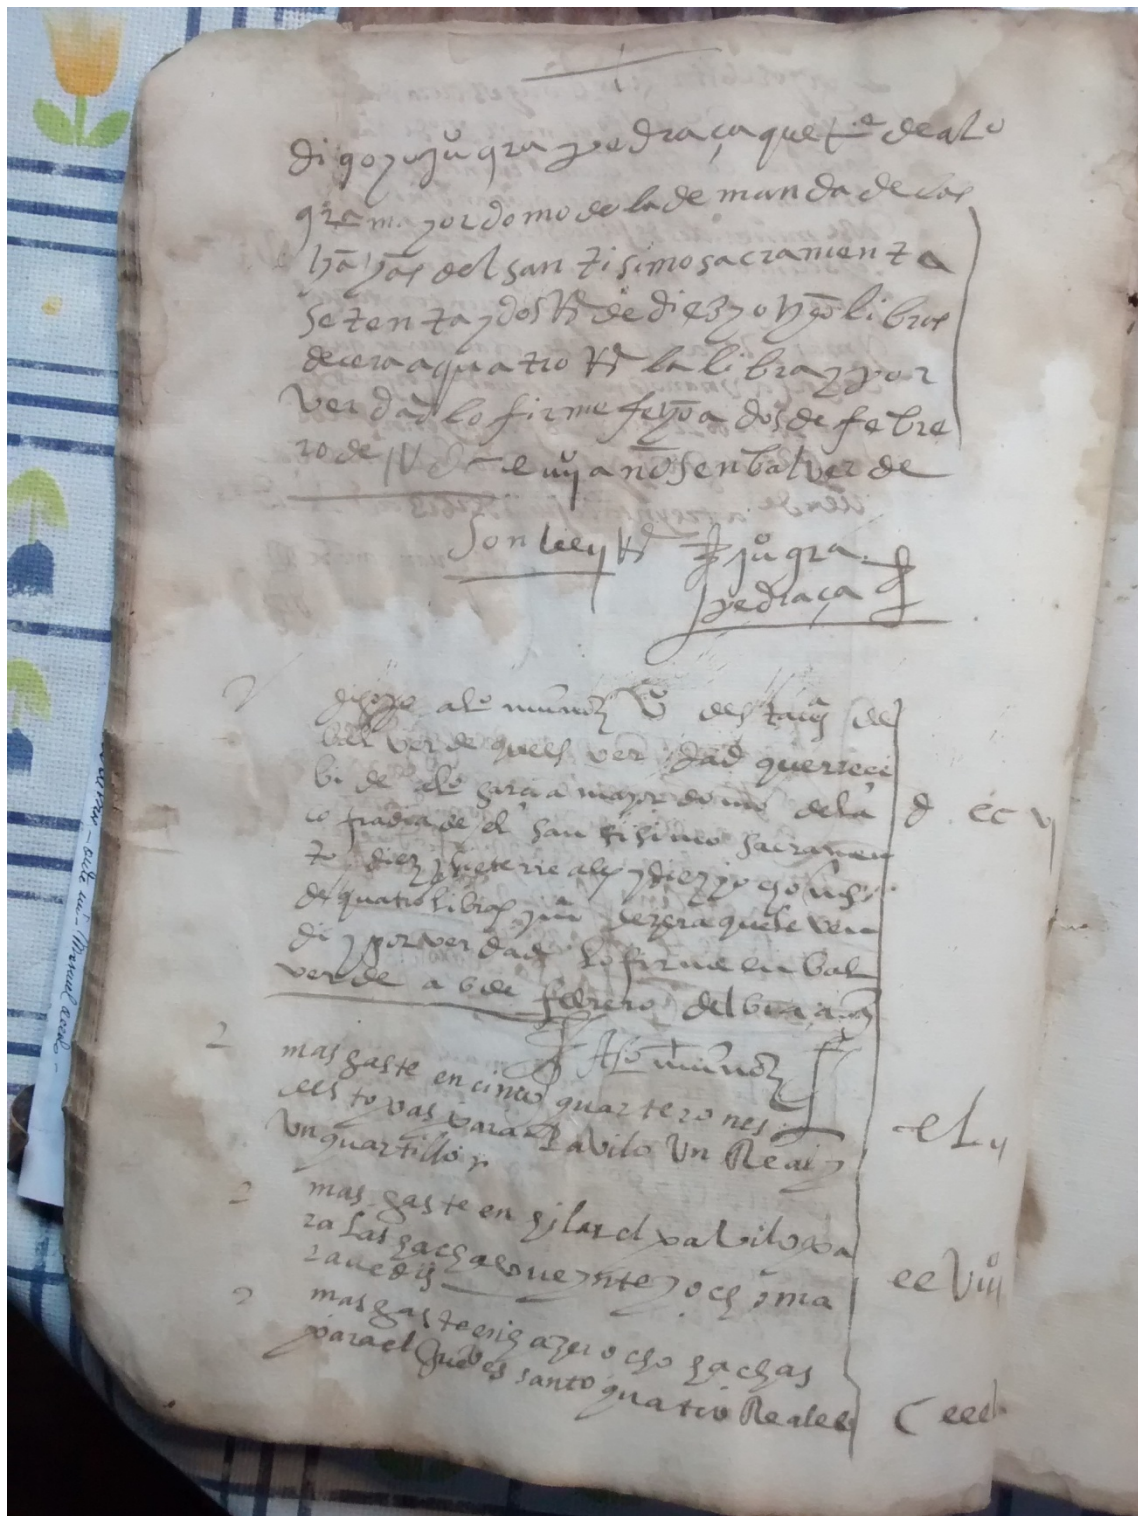 digo yo juº gra pedraça que Rᵉ de alº
gra mayordomo de la demanda de las
hachas del santisimo sacramento
setenta y dos Rs de diez y ocho libras
de cera a quatro Rs la libra y por
verdad lo firme fecho a dos de febre
ro de años en balverde
Son lxxij Rs juº gra
pedraça
digo yo alº muñoz vº desta de
balverde ques verdad que rreci
bi de alº garcia mayordomo de la
cofradia de el santisimo sacramen
to diez y siete rreales y diez y ocho
de quatro libras y de zera que le ven
di y por verdad lo firme en bal
verde a 6 de febrero del
Alº muñoz
mas gaste en cinco quarterones
de estopas para Pavilo Un Real y
Un quartillo
mas gaste en hilar el pavilo pa
ra las hachas veynte y ocho ma
ravedis
mas gaste en hazer ocho hachas
para el Jueves santo quatro Reales